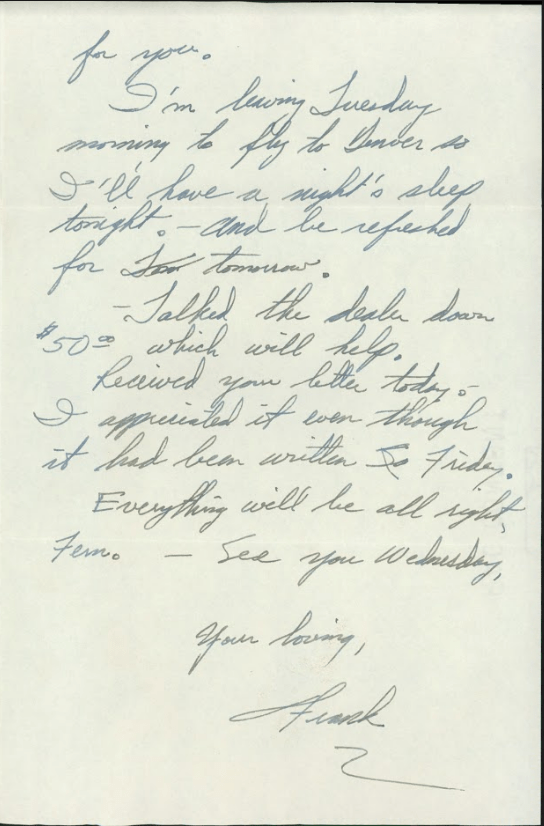 for you.
I'm leaving Tuesday
morning to fly to Denver so
I'll have a night's sleep
tonight. – and be refreshed
for Tom tomorrow.
– Talked the dealer down
$50.00 which will help.
Received your letter today –
I appreciated it even though
it had been written So Friday.
Everything will be all right,
Fern. – See you Wednesday,
Your loving,
Frank